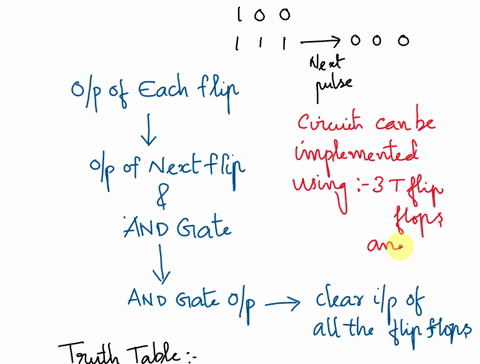 1 0 0
1 1 1 → 0 0 0
Next
pulse
O/p of Each flip
↓
O/p of Next flip
&
AND Gate
↓
AND Gate O/p → clear i/p of
all the flip flops
Circuit can be
implemented
using :- 3 T flip
flops
an
Truth Table :-